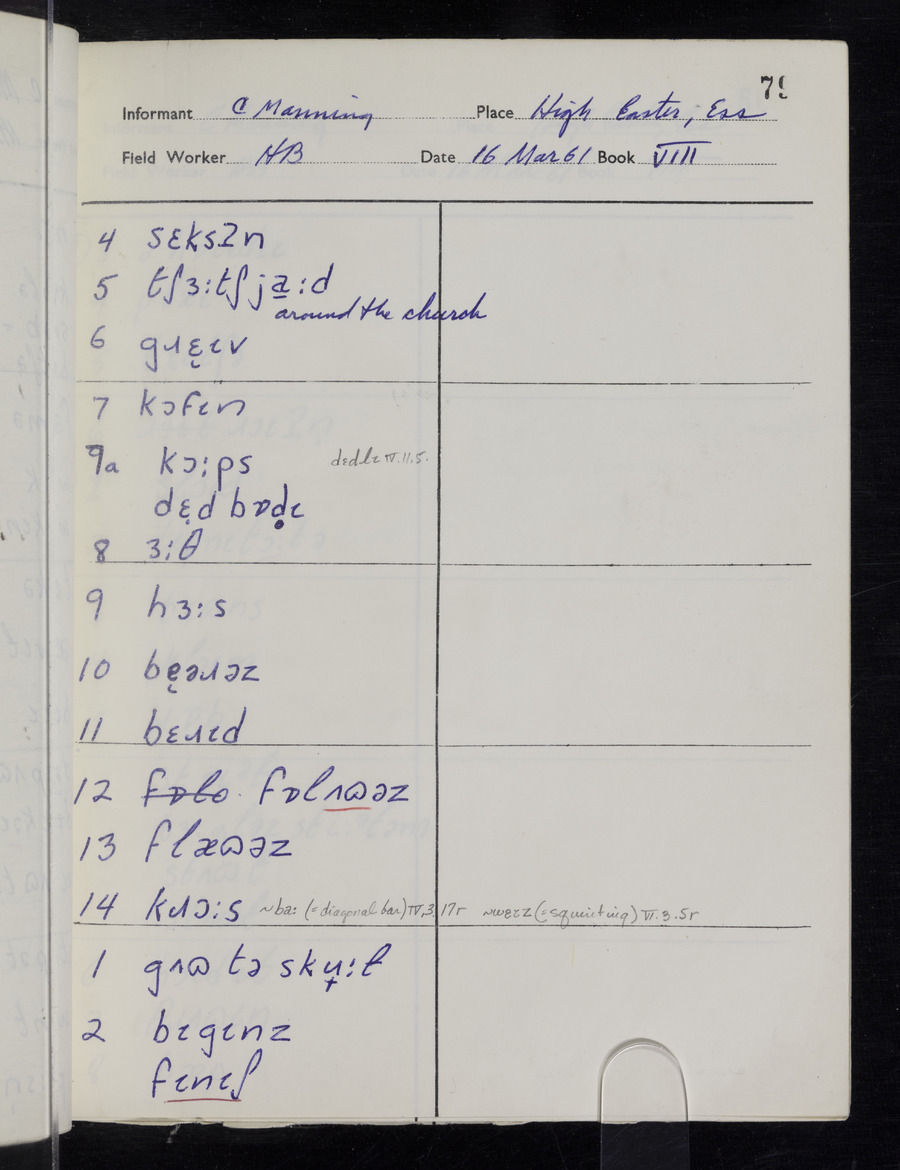 79
Informant C Manning Place High Easter, Ess
Field Worker HB Date 16 Mar 61 Book VIII
4 sɛk̩sɪn
5 tʃɜ:tʃja̱:d
around the church
6 gɹɛ̨ɩv
7 kɔfɩn
9a kɔ:ps dɛdlɩ IV.11.5.
dɛ̨d bɒḍɩ
8 ɜ:θ
9 hɜ:s
10 bę̈əɹəz
11 bɛɹɩd
12 f̶ɒ̶l̶o̶ fɒlʌɷəz
13 flæɷəz
14 kɹɔ:s ~ba: (=diagonal bar) IV.3.17r ~wɛɩz (=squinting) VI.3.5r
1 gʌɷ tə skʉ̟:l
2 bɩgɩnz
fɩnɩʃ